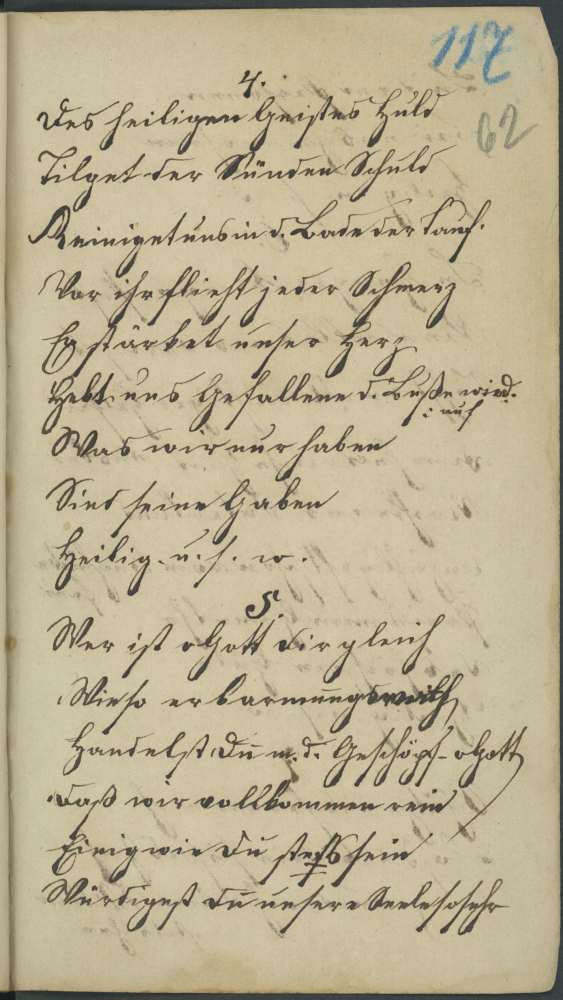 117
62
4.
Des heiligen Geistes Huld
Tilget der Sünden Schuld
Reiniget uns in d. Bade der Tauf.
Vor ihr flieht jeder Schmerz
Er stärket unser Herz
Hebt uns Gefallene d. Buße wied.
: auf
Was wir nur haben
Sind seine Gaben
Heilig. u. s. w.
5.
Wer ist o Gott dir gleich
Wie so erbarmungsreich
Handelst Du m. d. Geschöpf o Gott
Daß wir vollkommen rein
Einig wie Du stets sein
Würdigest du unsere Seele so sehr